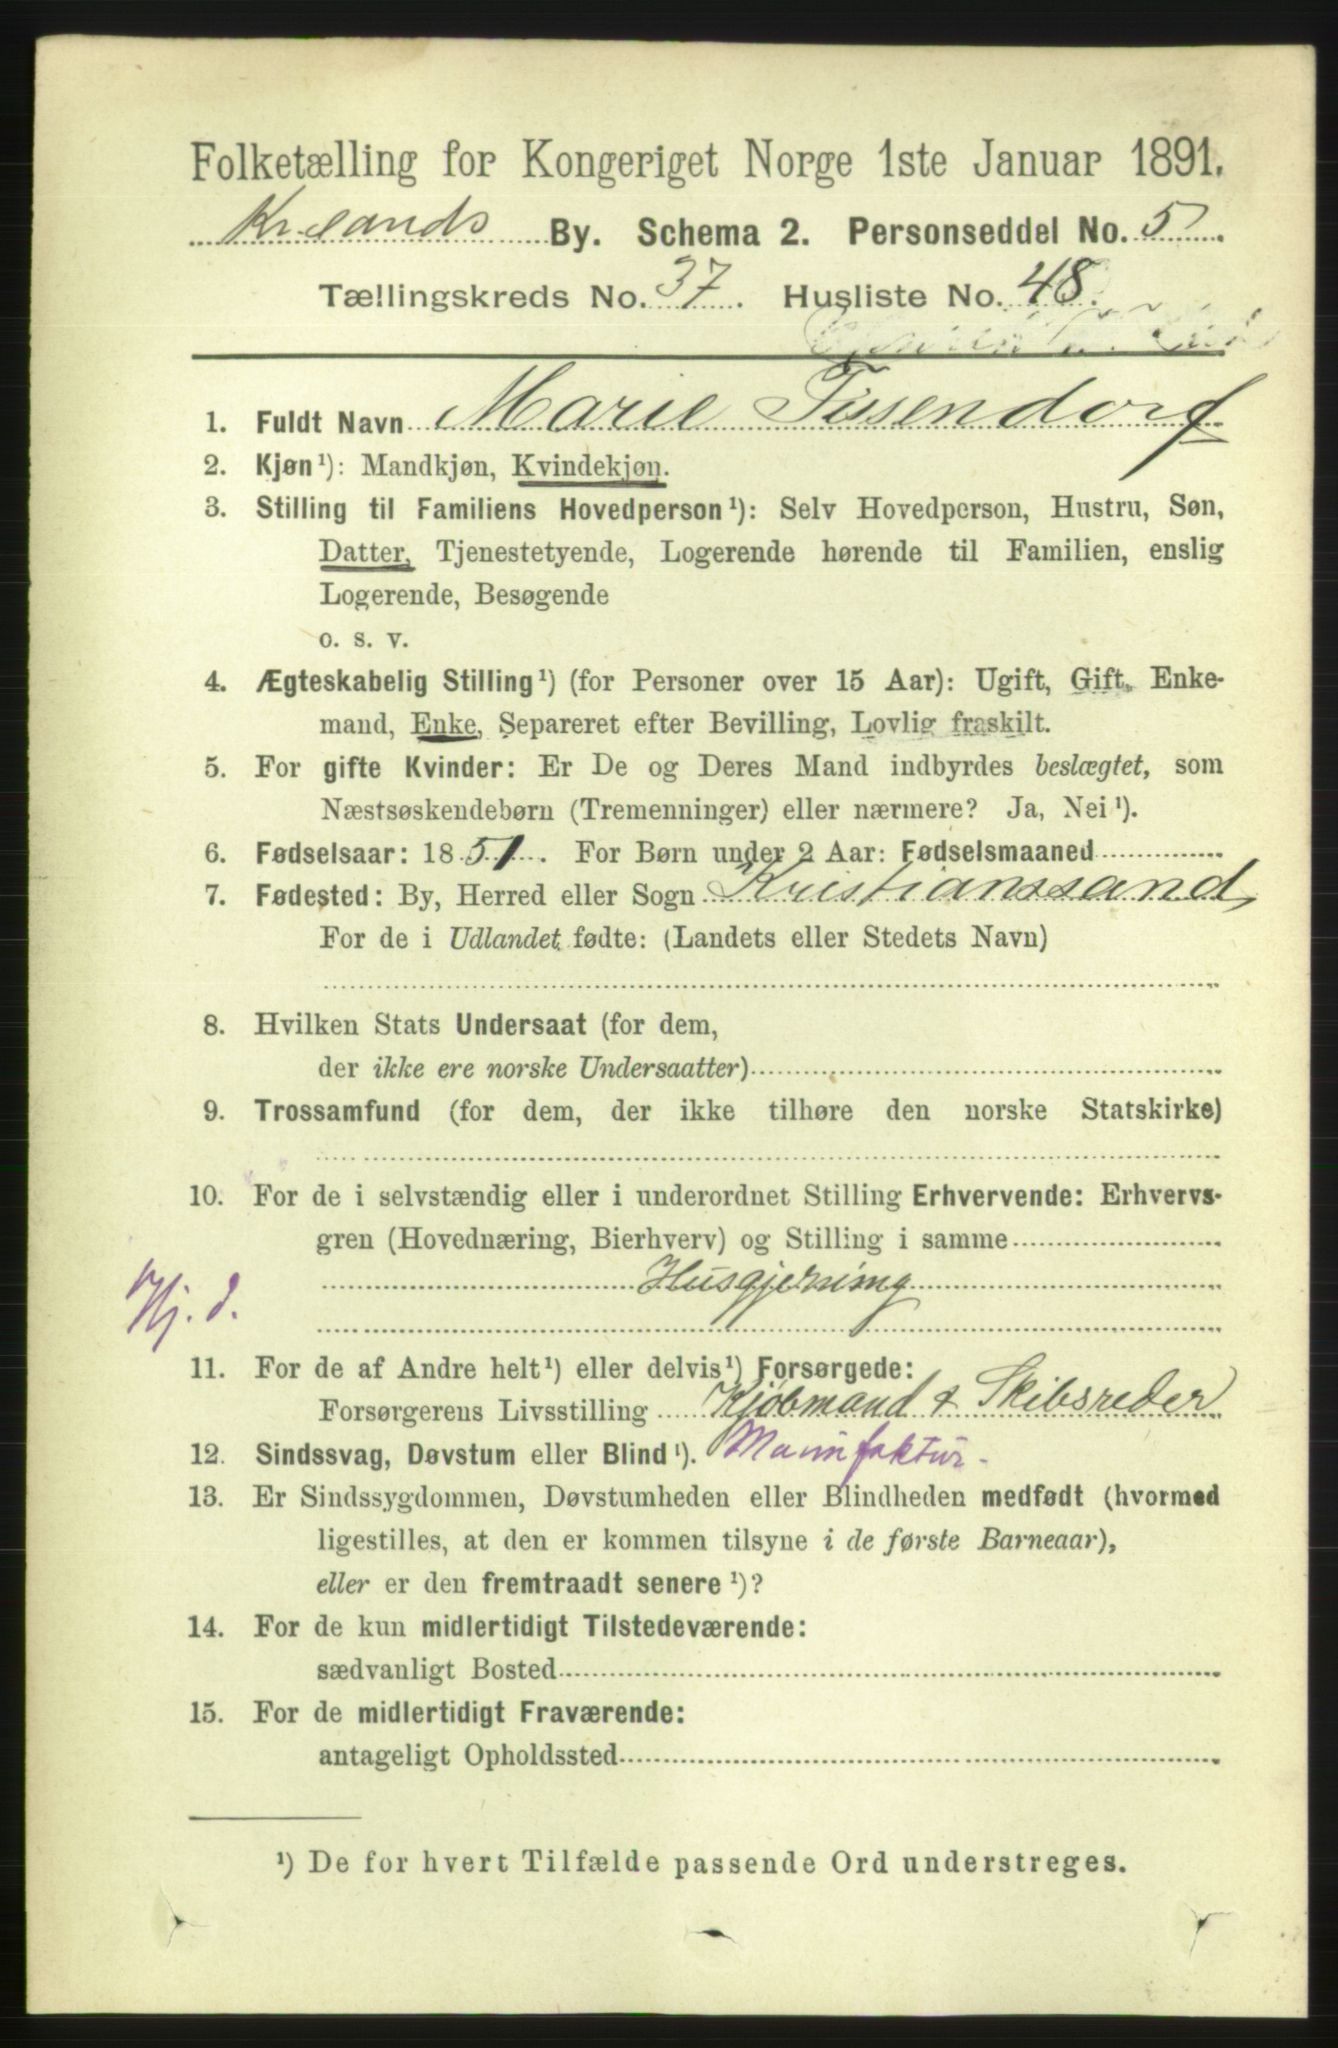 Folketælling for Kongeriget Norge 1ste Januar 1891.
Kr.sands By. Schema 2. Personseddel No. 5
Tællingskreds No. 37. Husliste No. 48.
1. Fuldt Navn Marie Tissendorf
2. Kjøn¹): Mandkjøn, Kvindekjøn.
3. Stilling til Familiens Hovedperson¹): Selv Hovedperson, Hustru, Søn,
Datter, Tjenestetyende, Logerende hørende til Familien, enslig
Logerende, Besøgende
o. s. v.
4. Ægteskabelig Stilling¹) (for Personer over 15 Aar): Ugift, Gift, Enke-
mand, Enke, Separeret efter Bevilling, Lovlig fraskilt.
5. For gifte Kvinder: Er De og Deres Mand indbyrdes beslægtet, som
Næstsøskendebørn (Tremenninger) eller nærmere? Ja, Nei¹).
6. Fødselsaar: 1851. For Børn under 2 Aar: Fødselsmaaned
7. Fødested: By, Herred eller Sogn Kristianssand
For de i Udlandet fødte: (Landets eller Stedets Navn)
8. Hvilken Stats Undersaat (for dem,
der ikke ere norske Undersaatter)
9. Trossamfund (for dem, der ikke tilhøre den norske Statskirke)
10. For de i selvstændig eller i underordnet Stilling Erhvervende: Erhvervs-
gren (Hovednæring, Bierhverv) og Stilling i samme
Husgjerning
Hj. d.
11. For de af Andre helt¹) eller delvis¹) Forsørgede:
Forsørgerens Livsstilling Kjøbmand & Skibsreder
12. Sindssvag, Døvstum eller Blind¹). Manufaktur.
13. Er Sindssygdommen, Døvstumheden eller Blindheden medfødt (hvormed
ligestilles, at den er kommen tilsyne i de første Barneaar),
eller er den fremtraadt senere¹)?
14. For de kun midlertidigt Tilstedeværende:
sædvanligt Bosted
15. For de midlertidigt Fraværende:
antageligt Opholdssted
¹) De for hvert Tilfælde passende Ord understreges.